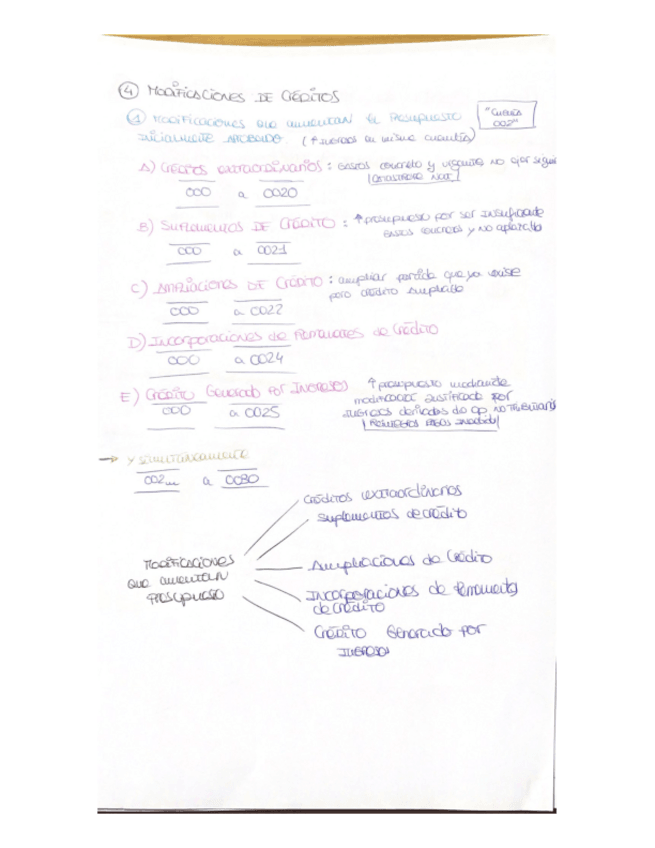 4 Modificaciones de Créditos
1 Modificaciones que aumentan el Presupuesto "Cuenta
inicialmente aprobado. (↑ misma cuantía) 002"
A) Créditos extraordinarios: Gastos concreto y no
Catástrofe Nat.
000 a 0020
B) Suplementos de Crédito: ↑ presupuesto por ser insuficiente
gastos y no
000 a 0021
C) Ampliaciones de Crédito: ampliar partida que ya existe
pero crédito ampliable
000 a 0022
D) Incorporaciones de Remanentes de Crédito
000 a 0024
E) Crédito Generado por Ingresos ↑ presupuesto mediante
justificado por
000 a 0025 ingresos derivados de op. no tributaria
→ y simultáneamente
002... a 0030
Créditos extraordinarios
Suplementos de crédito
Modificaciones Ampliaciones de Crédito
que aumentan Incorporaciones de Remanentes
Presupuesto de crédito
Crédito Generado por
Ingresos